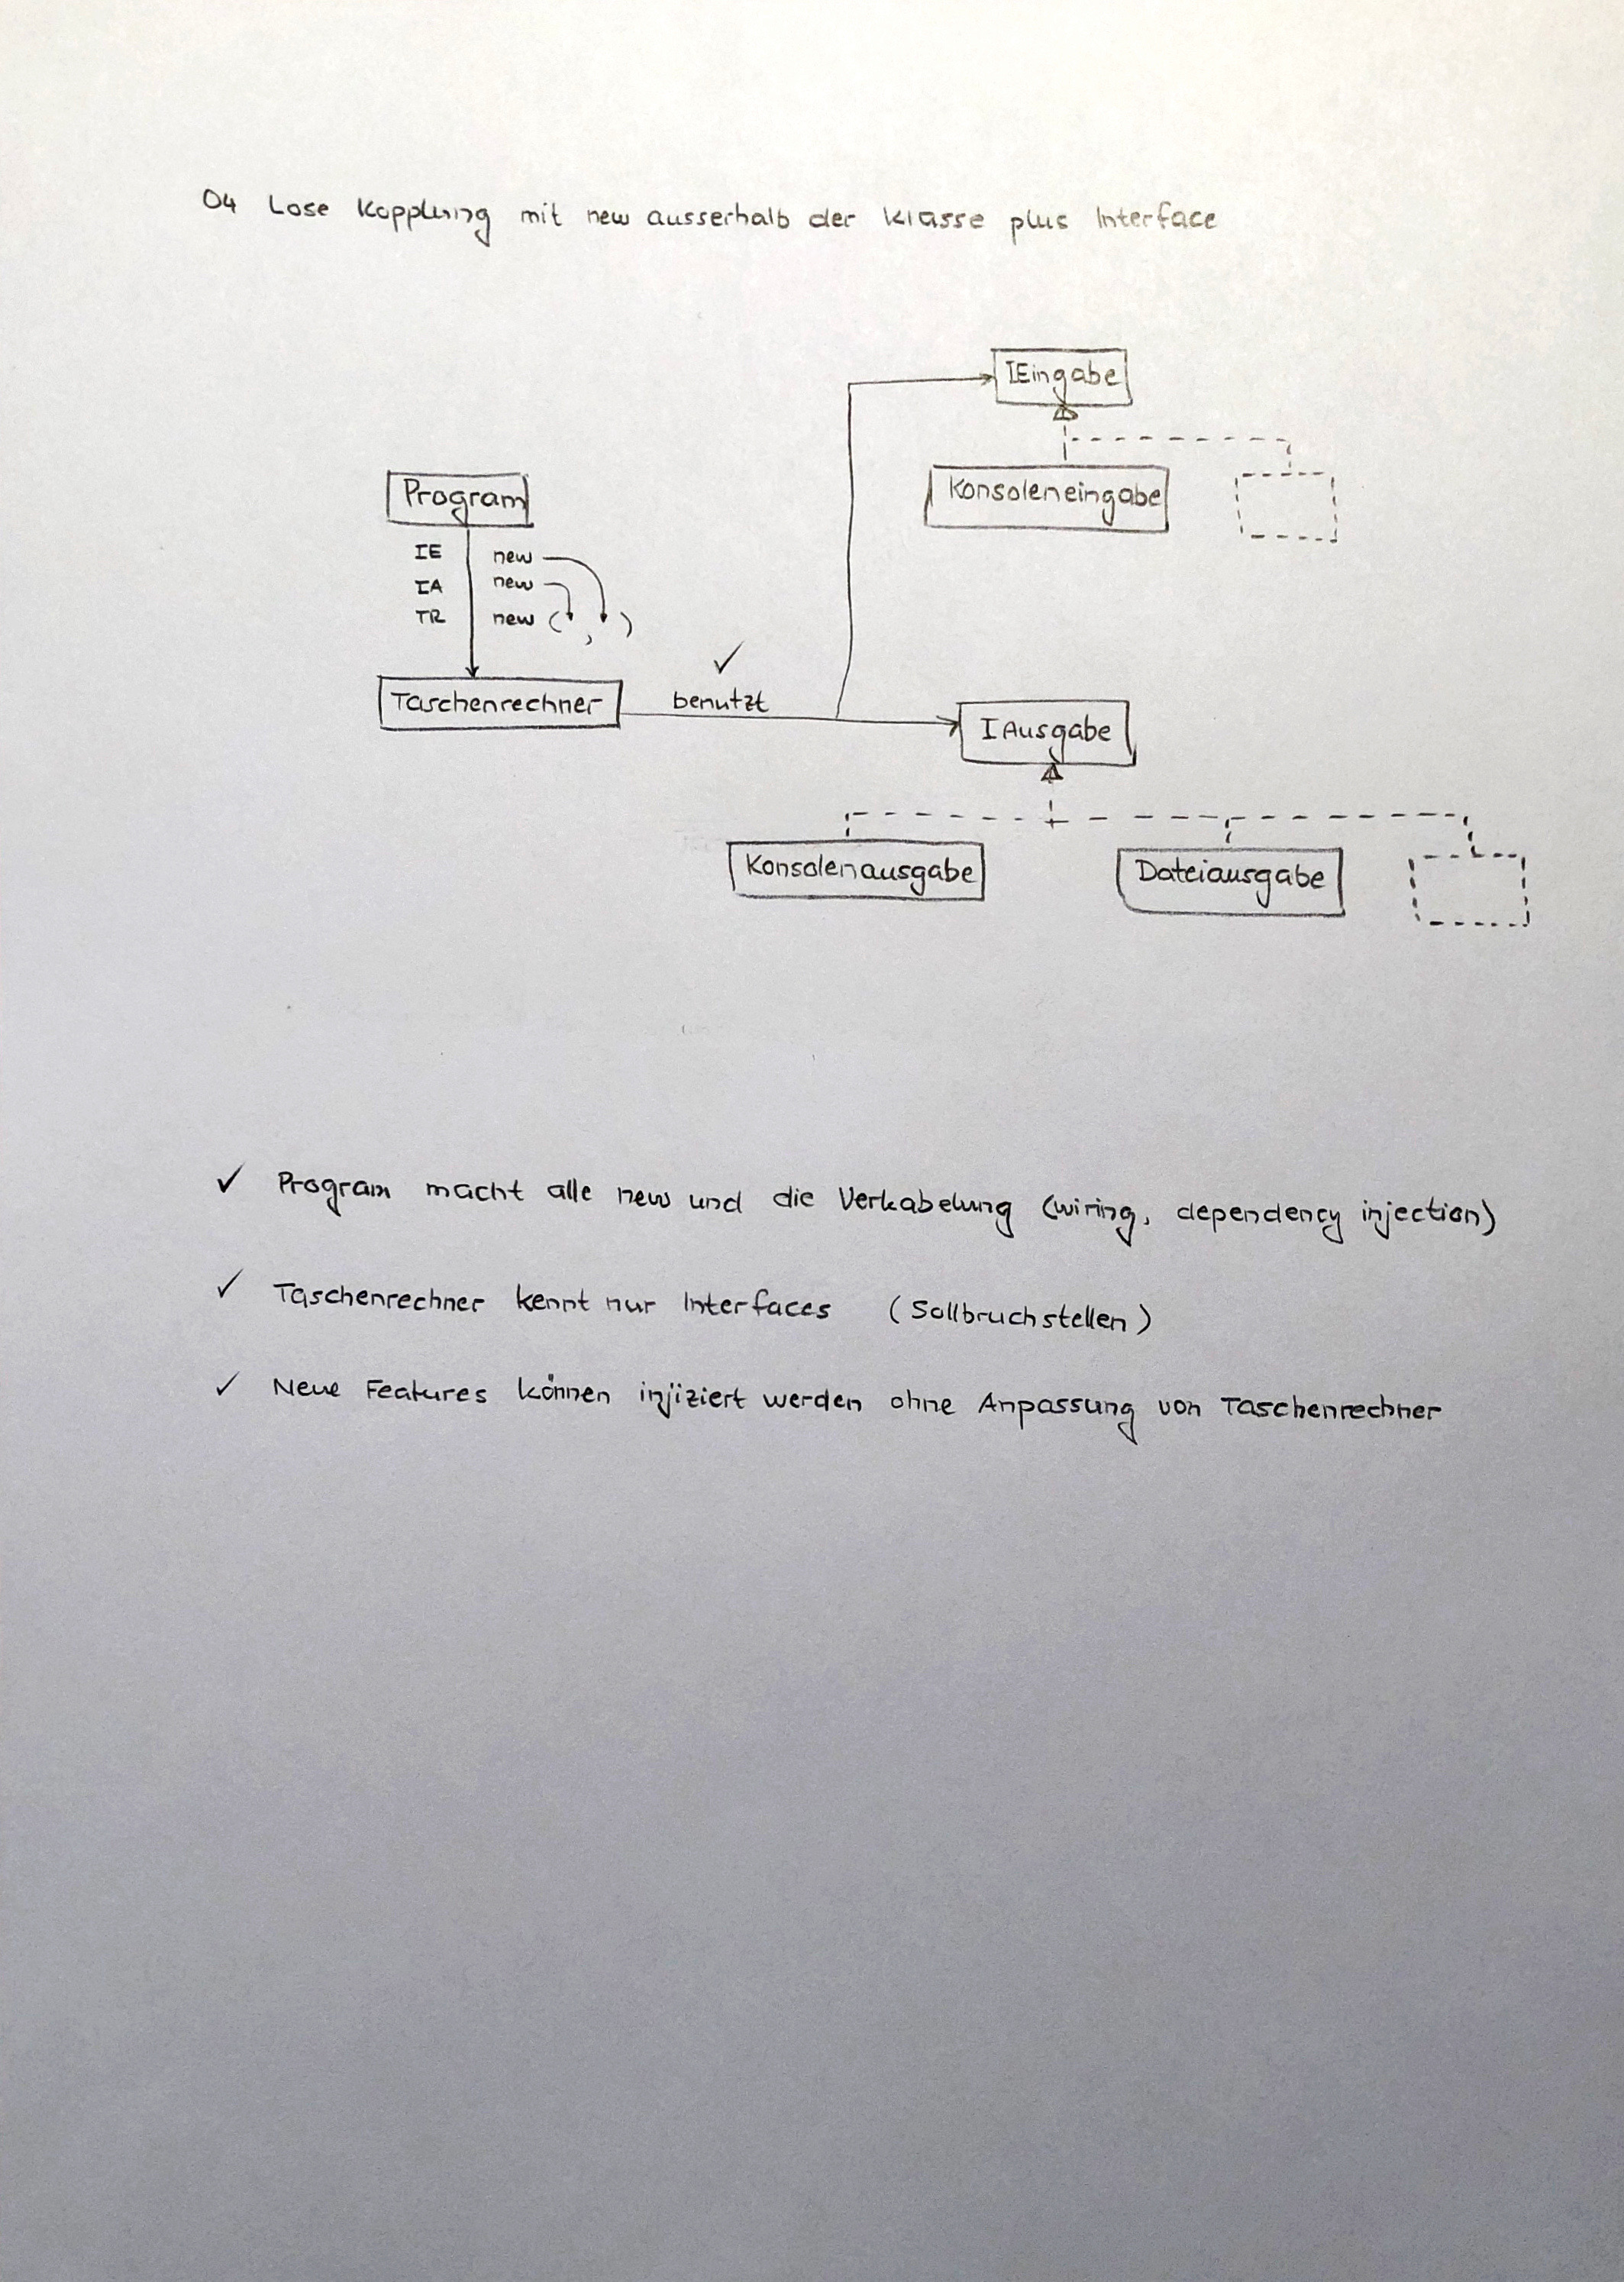 04 Lose Kopplung mit new ausserhalb der Klasse plus Interface
IEingabe
Konsoleneingabe
Program
IE new
IA new
TR new ( , )
✓
Taschenrechner benutzt
IAusgabe
Konsolenausgabe Dateiausgabe
✓ Program macht alle new und die Verkabelung (wiring, dependency injection)
✓ Taschenrechner kennt nur Interfaces (Sollbruchstellen)
✓ Neue Features können injiziert werden ohne Anpassung von Taschenrechner